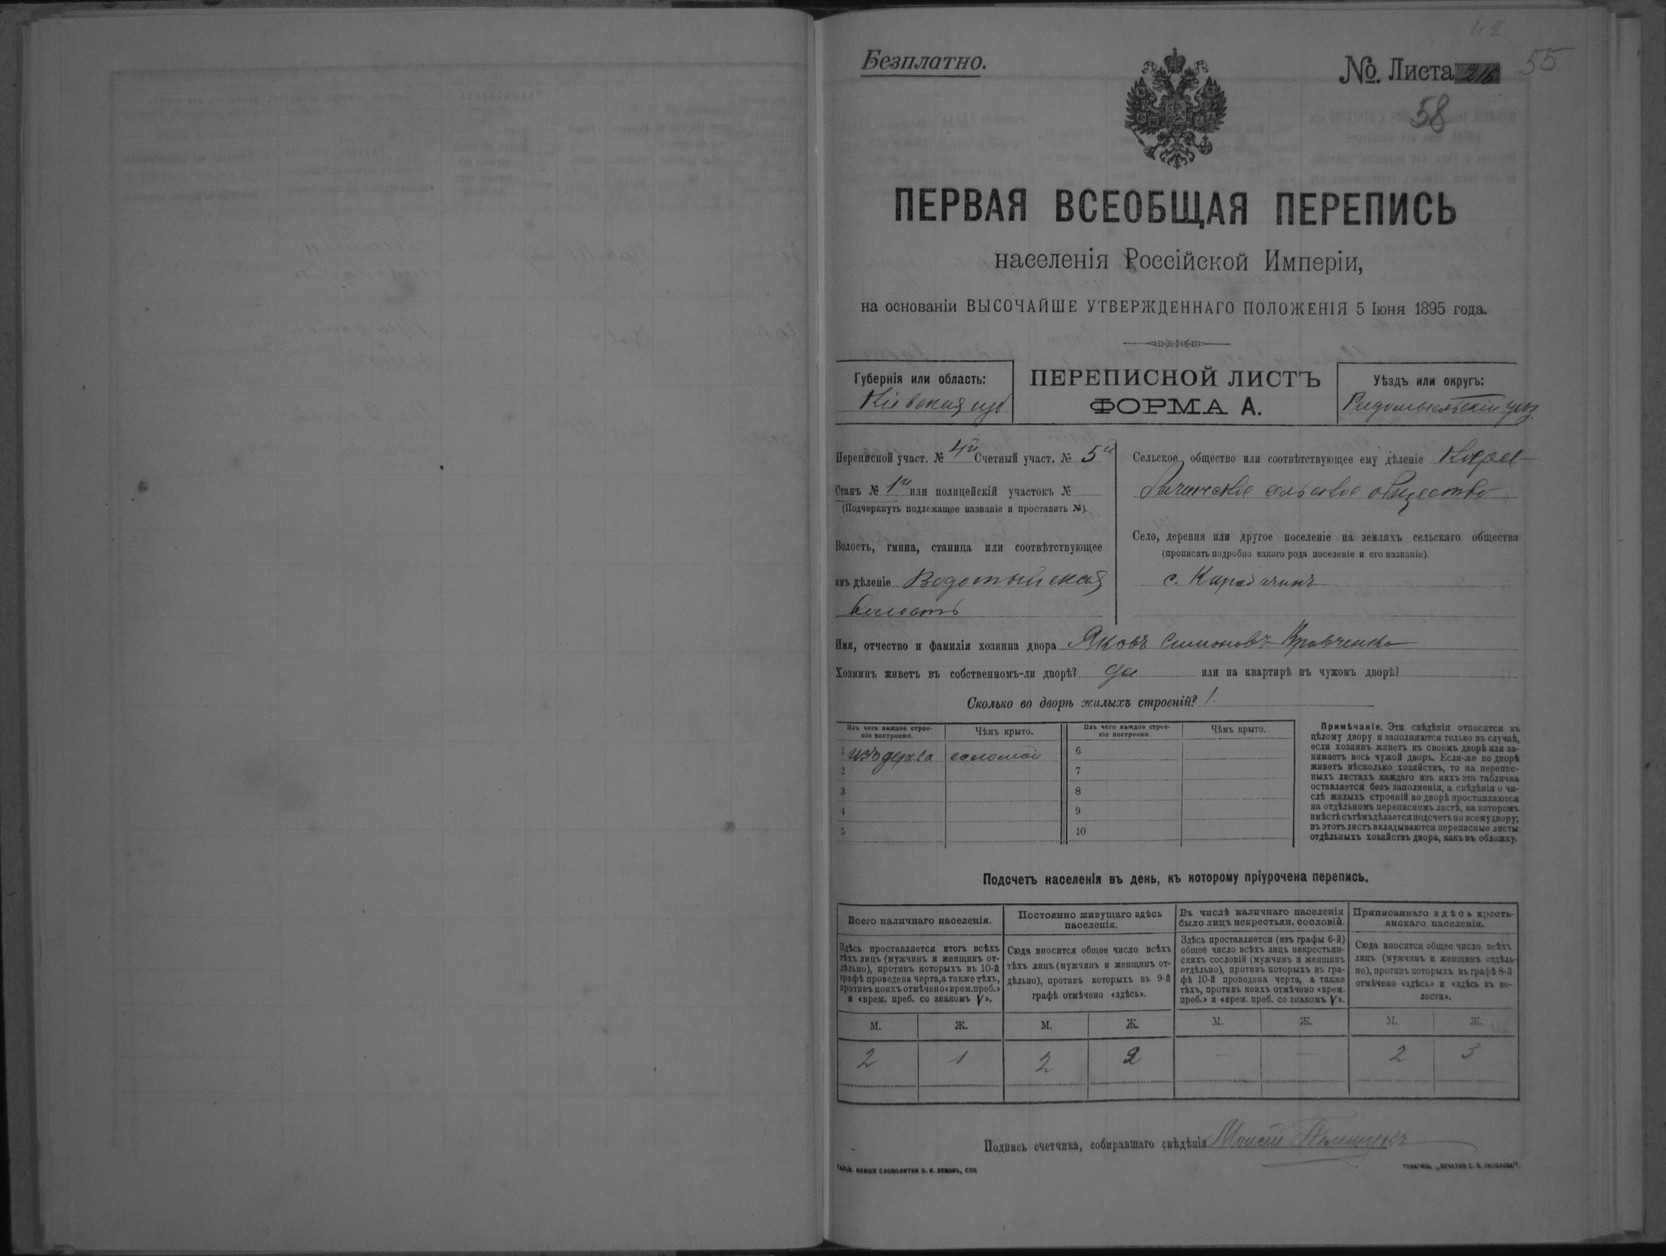 42
Безплатно.
№. Листа
55
58
ПЕРВАЯ ВСЕОБЩАЯ ПЕРЕПИСЬ
населенія Россійской Имперіи,
на основаніи ВЫСОЧАЙШЕ УТВЕРЖДЕННАГО ПОЛОЖЕНІЯ 5 Іюня 1895 года.
Губернія или область:
Кіевская губ
ПЕРЕПИСНОЙ ЛИСТЪ
ФОРМА А.
Уѣздъ или округъ:
Радомысльскій уѣз.
Переписной участ. № 4й Счетный участ. № 5й
Станъ № 1й или полицейскій участокъ №
(Подчеркнуть подлежащее названіе и проставить №).
Волость, гмина, станица или соотвѣтствующее
имъ дѣленіе Водотыйская
волость
Сельское общество или соотвѣтствующее ему дѣленіе Кара-
бачинское сельское общество
Село, деревня или другое поселеніе на земляхъ сельскаго общества
(прописать подробно какого рода поселеніе и его названіе)
с. Карабачинъ
Имя, отчество и фамилія хозяина двора Яковъ Симоновъ Кравченко
Хозяинъ живетъ въ собственномъ-ли дворѣ? да или на квартирѣ въ чужомъ дворѣ?
Сколько во дворѣ жилыхъ строеній? 1.
Изъ чего каждое строе-
ніе построено.
Чѣмъ крыто.
Изъ чего каждое строе-
ніе построено.
Чѣмъ крыто.
1 изъ дерева соломой 6
2 7
3 8
4 9
5 10
Примѣчаніе. Эти свѣдѣнія относятся къ
цѣлому двору и заполняются только въ случаѣ,
если хозяинъ живетъ въ своемъ дворѣ или за-
нимаетъ весь чужой дворъ. Если-же во дворѣ
живетъ нѣсколько хозяйствъ, то на перепис-
ныхъ листахъ каждаго изъ нихъ эта табличка
оставляется безъ заполненія, а свѣдѣнія о чи-
слѣ жилыхъ строеній во дворѣ проставляются
на отдѣльномъ переписномъ листѣ, на которомъ
вмѣстѣ съ тѣмъ дѣлается подсчетъ по всему двору;
въ этотъ листъ вкладываются переписные листы
отдѣльныхъ хозяйствъ двора, какъ въ обложку.
Подсчетъ населенія въ день, къ которому пріурочена перепись.
Всего наличнаго населенія.
Здѣсь проставляется итогъ всѣхъ
тѣхъ лицъ (мужчинъ и женщинъ от-
дѣльно), противъ которыхъ въ 10-й
графѣ проведена черта, а также тѣхъ,
противъ коихъ отмѣчено «врем. преб.»
и «врем. преб. со знакомъ V».
Постоянно живущаго здѣсь
населенія.
Сюда вносится общее число всѣхъ
тѣхъ лицъ (мужчинъ и женщинъ от-
дѣльно), противъ которыхъ въ 9-й
графѣ отмѣчено «здѣсь».
Въ числѣ наличнаго населенія
было лицъ некрестьян. сословій.
Здѣсь проставляется (изъ графы 6-й)
общее число всѣхъ лицъ некрестьян-
скихъ сословій (мужчинъ и женщинъ
отдѣльно), противъ которыхъ въ гра-
фѣ 10-й проведена черта, а также
тѣхъ, противъ коихъ отмѣчено «врем.
преб.» и «врем. преб. со знакомъ V».
Приписаннаго здѣсь кресть-
янскаго населенія.
Сюда вносится общее число всѣхъ
лицъ (мужчинъ и женщинъ отдѣль-
но), противъ которыхъ въ графѣ 8-й
отмѣчено «здѣсь» и «здѣсь въ во-
лости».
М. Ж. М. Ж. М. Ж. М. Ж.
2 1 2 2 — — 2 3
Подпись счетчика, собиравшаго свѣдѣнія Моисей
ТОВАРИЩ. „ПЕЧАТНЯ С. П. ЯКОВЛЕВА".